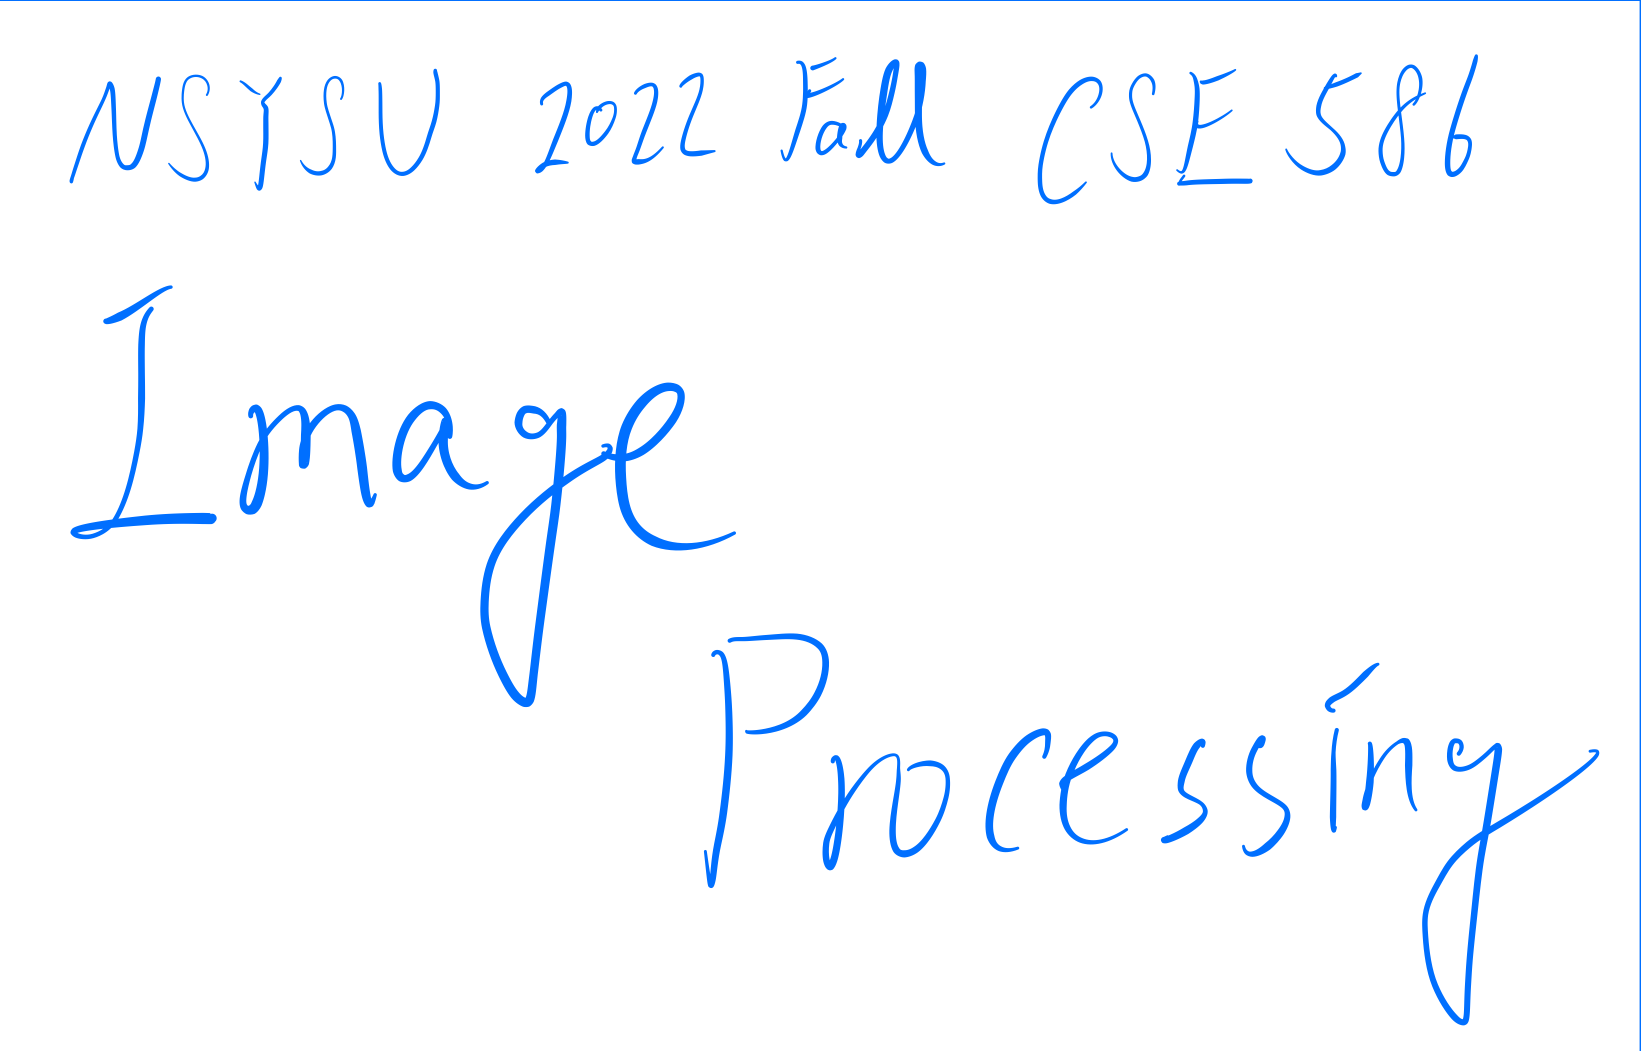 NSYSU 2022 Fall CSE 586
Image
Processing